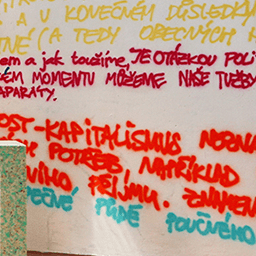 A V KONEČNÉM DŮSLEDKU
TNÉ (A TEDY OBECNÝCH
em a jak toužíme, JE OTÁZKOU POLI
ÉM MOMENTU MŮŽEME NAŠE TUŽBY
APARÁTY.
OST-KAPITALISMUS NEZNA
POTŘEB, NAPŘÍKLAD
PŘÍJMU. ZNAMEN
PEČNÉ PŮDĚ POUČNÉHO